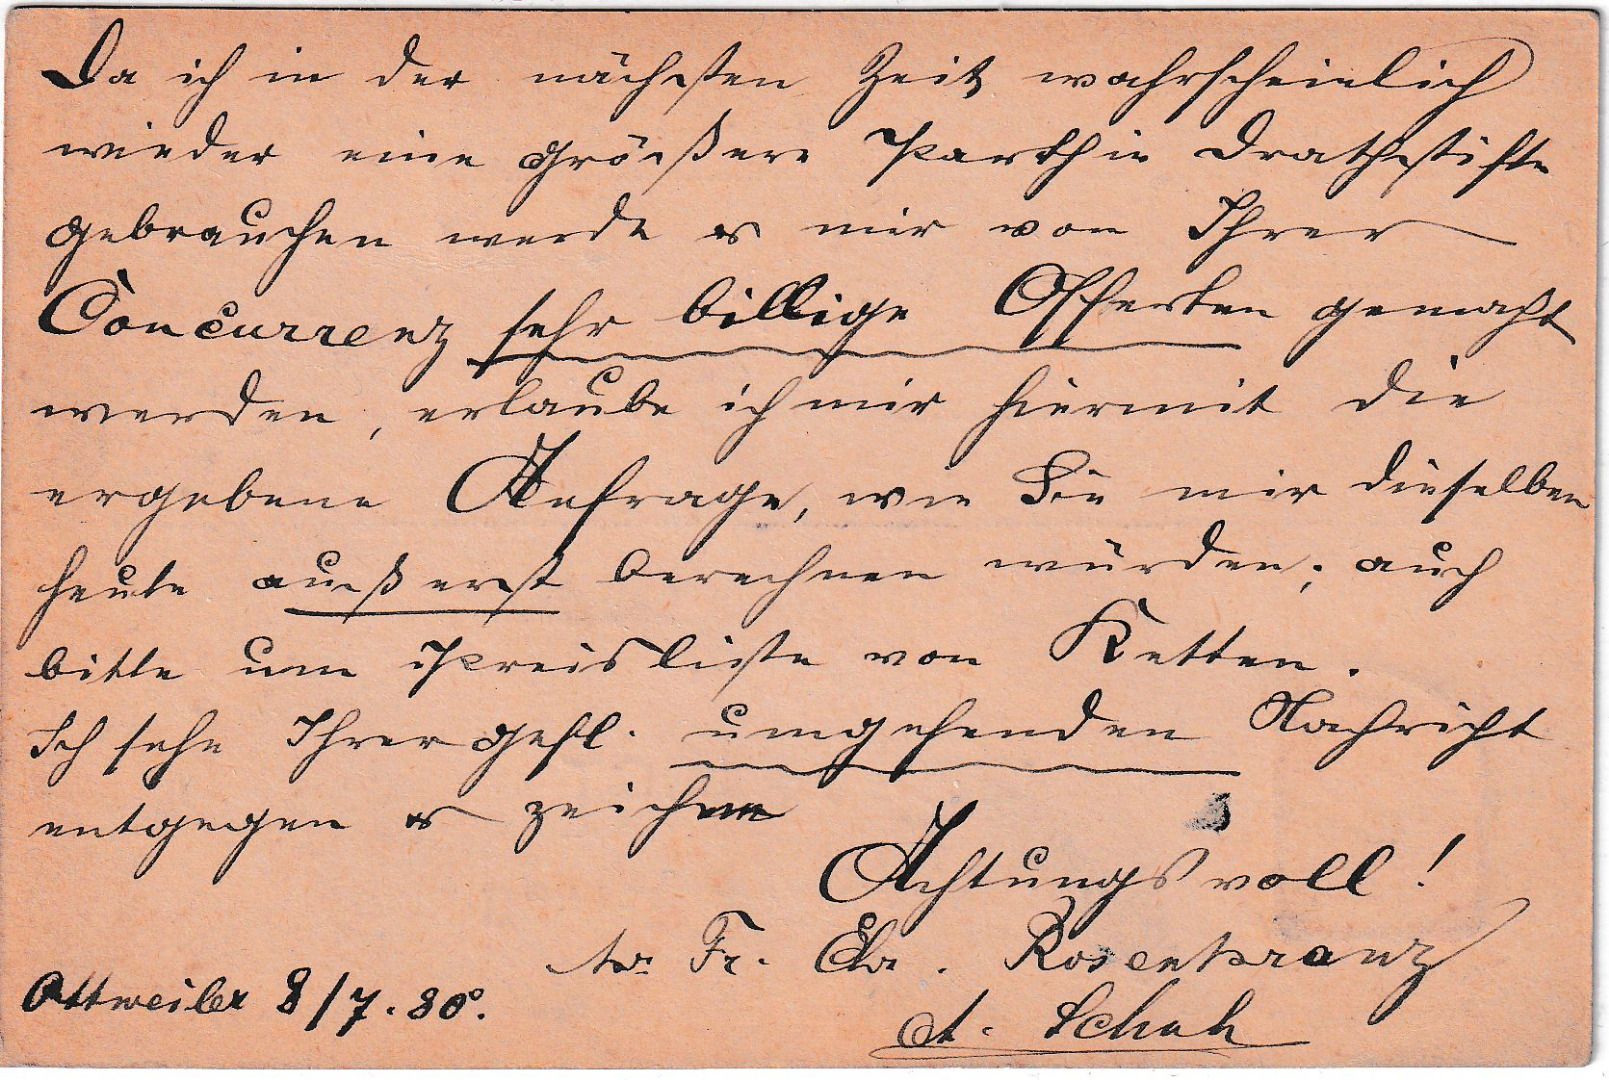 Da ich in der nächsten Zeit wahrscheinlich
wieder eine größere Parthie Drathstifte
gebrauchen werde & mir von Ihrer
Concurrenz sehr billige Offerten gemacht
werden, erlaube ich mir hiermit die
ergebene Anfrage, wie Sie mir dieselben
heute äußerst berechnen würden; auch
bitte um Preisliste von Ketten.
Ich sehe Ihrer gefl. umgehenden Nachricht
entgegen & zeichne
Achtungsvoll!
Fr. Rosenkranz
Ottweiler 8/7. 80.
A. Schuh